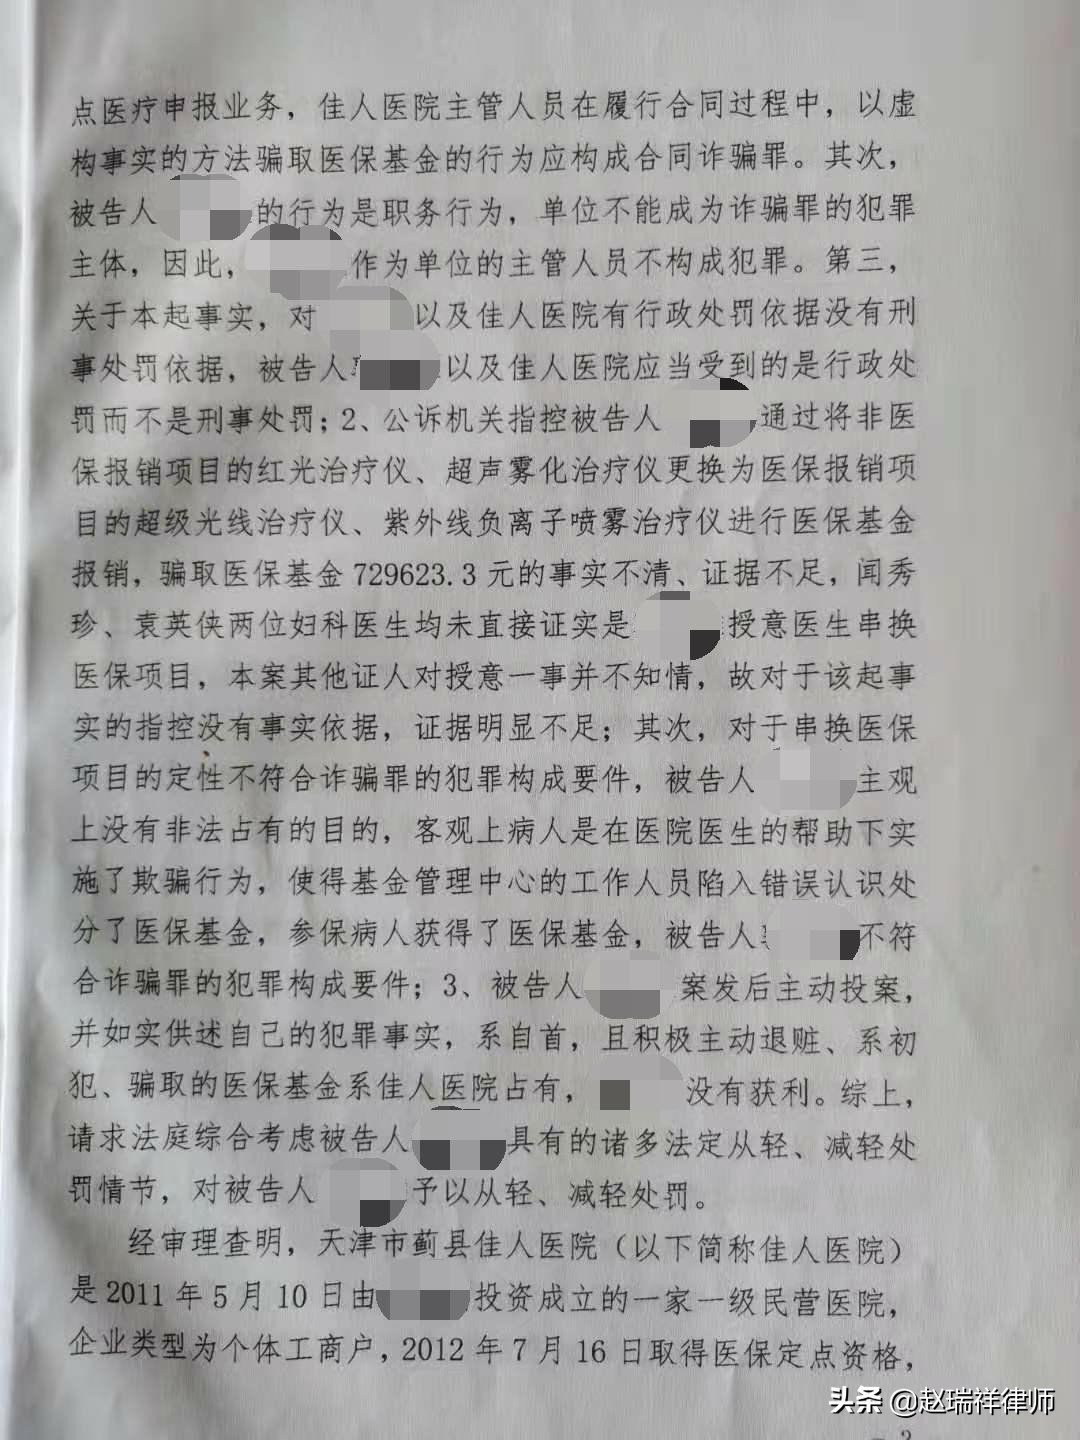 点医疗申报业务，佳人医院主管人员在履行合同过程中，以虚
构事实的方法骗取医保基金的行为应构成合同诈骗罪。其次，
被告人 的行为是职务行为，单位不能成为诈骗罪的犯罪
主体，因此， 作为单位的主管人员不构成犯罪。第三，
关于本起事实，对 以及佳人医院有行政处罚依据没有刑
事处罚依据，被告人 以及佳人医院应当受到的是行政处
罚而不是刑事处罚；2、公诉机关指控被告人 通过将非医
保报销项目的红光治疗仪、超声雾化治疗仪更换为医保报销项
目的超级光线治疗仪、紫外线负离子喷雾治疗仪进行医保基金
报销，骗取医保基金 729623.3 元的事实不清、证据不足，闻秀
珍、袁英侠两位妇科医生均未直接证实是 授意医生串换
医保项目，本案其他证人对授意一事并不知情，故对于该起事
实的指控没有事实依据，证据明显不足；其次，对于串换医保
项目的定性不符合诈骗罪的犯罪构成要件，被告人 主观
上没有非法占有的目的，客观上病人是在医院医生的帮助下实
施了欺骗行为，使得基金管理中心的工作人员陷入错误认识处
分了医保基金，参保病人获得了医保基金，被告人 不符
合诈骗罪的犯罪构成要件；3、被告人 案发后主动投案，
并如实供述自己的犯罪事实，系自首，且积极主动退赃、系初
犯、骗取的医保基金系佳人医院占有， 没有获利。综上，
请求法庭综合考虑被告人 具有的诸多法定从轻、减轻处
罚情节，对被告人 予以从轻、减轻处罚。
经审理查明，天津市蓟县佳人医院（以下简称佳人医院）
是 2011 年 5 月 10 日由 投资成立的一家一级民营医院，
企业类型为个体工商户，2012 年 7 月 16 日取得医保定点资格，
头条 @赵瑞祥律师